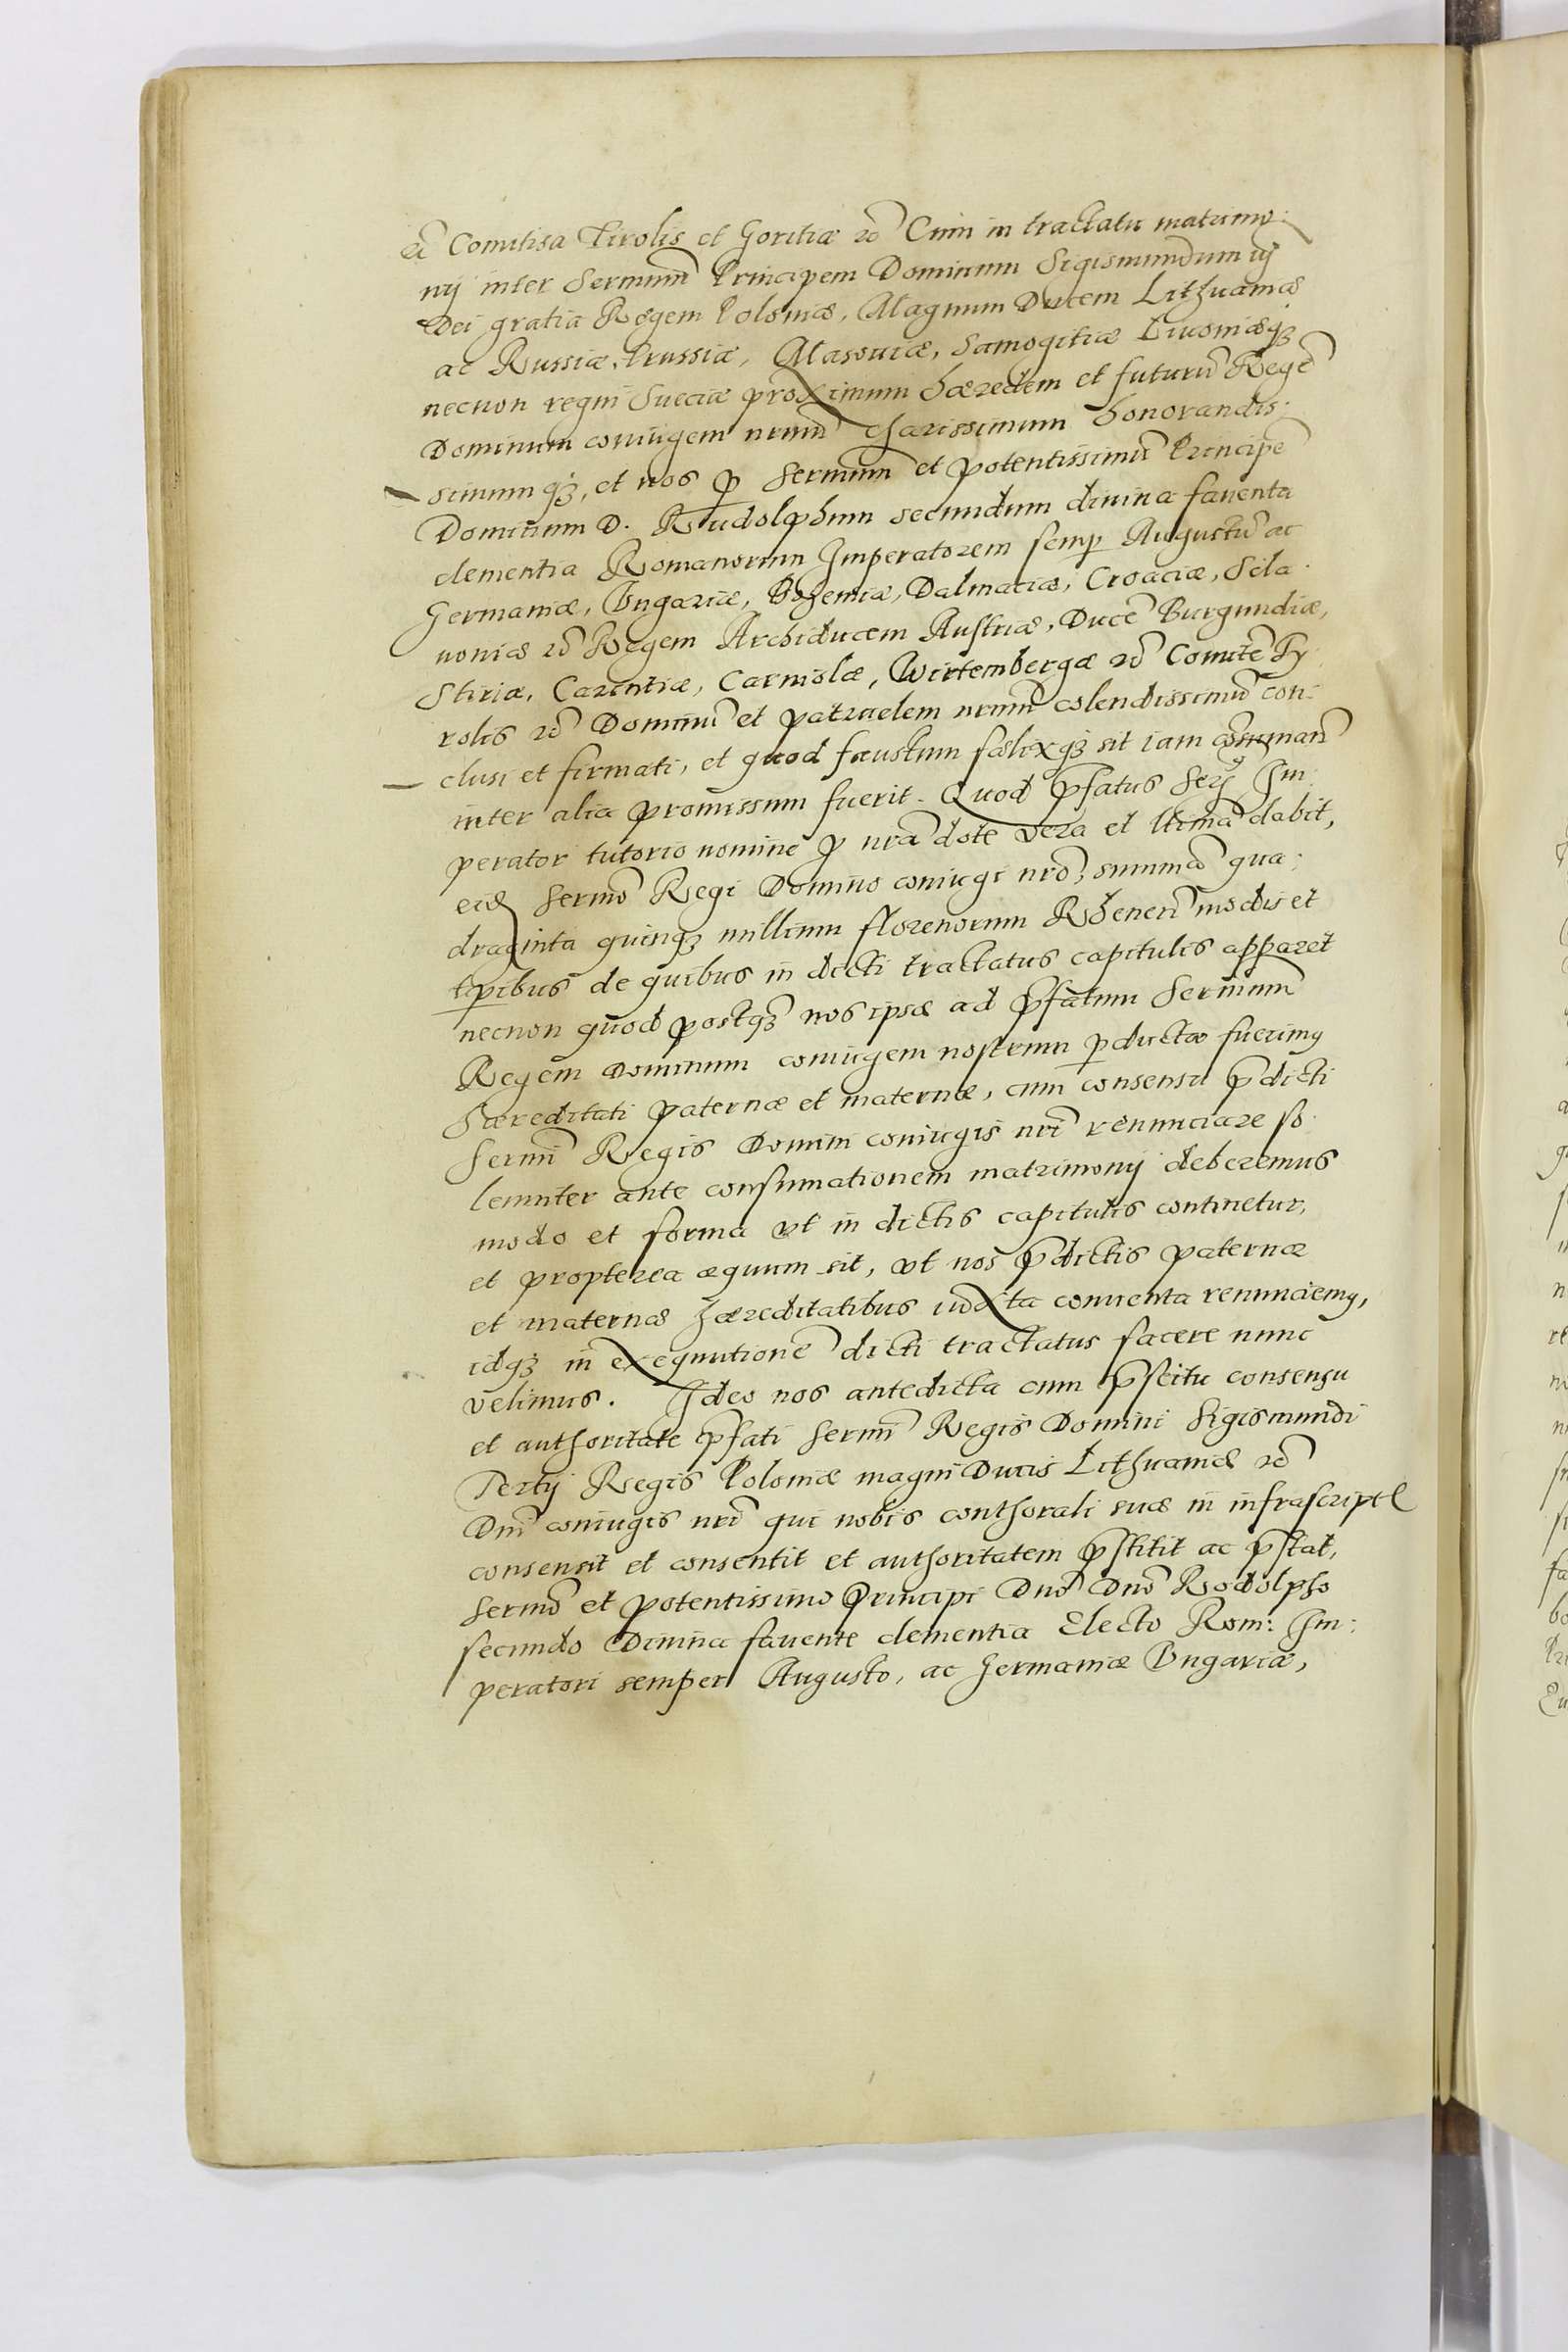 ec̃ Comitisa Tirolis et Goritiæ ec̃ Cum in tractatu matrimo:
nij inter Sermum̃ Principem Dominum Sigismundum iij
Dei gratia Regem Poloniæ, Magnum Ducem Lithuaniæ
ac Russiæ, Prussiæ, Masoviæ, Samogitiæ Livoniæq₃
necnon regni Sueciæ proximum hæredem et futurũ Regẽ
Dominum coniugem nrum̃ charissimum honorandis:
simumq₃, et nos ꝑ Sermum̃ et potentissimũ Principẽ
Dominum D. Rudolphum secundum divina faventa
clementia Romanorum Imperatorem semꝑ Augustũ ac
Germaniæ, Ungariæ, Bohemiæ, Dalmatiæ, Croaciæ, Scla:
voniæ ec̃ Regem Archiducem Austriæ, Ducẽ Burgundiæ,
Stiriæ, Carintiæ, Carniolæ, Wirtembergæ ec̃ Comitẽ Ty:
rolis ec̃ Dominũ et patruelem nrum̃ colendissimũ con:
clusi et firmati, et quod faustum fœlixq₃ sit iam
inter alia promissum fuerit. Quod p̃fatus Ser: Im:
perator tutorio nomine ꝓ nrã dote vera et ltima͂ dabit,
eid̃ Sermo͂ Regi Domino coniugi nro͂, summã qua:
draginta quinq₃ millium florenorum Rhenen̄ modis et
tꝑibus de quibus in dicti tractatus capitulis apparet
necnon quod postq₃ nos ipsæ ad p̃fatum Sermum̃
Regem Dominum coniugem nostrum ꝑductæ fuerimꝰ
Hæreditati paternæ et maternæ, cum consensu p̃dicti
Sermi͂ Regis Domini coniugis nri͂ renunciare so:
lemniter ante consumationem matrimonij deberemus
modo et forma vt in dictis capitulis continetur,
et propterea æquum sit, vt nos p̃dictis paternæ
et maternæ hæreditatibus iuxta conventa renunciemꝰ,
idq₃ in exequutionẽ dicti tractatus facere nunc
velimus. Ideo nos antedicta cum p̃scitu consensu
et authoritate p̃fati Sermi͂ Regis Domini Sigismundi
Tertij Regis Poloniæ magni Ducis Lithuaniæ ec̃
Dni͂ coniugis nri͂ qui nobis conthorali suæ in infrascript̃
consensit et consentit et authoritatem p̃stitit ac p̃stat,
Sermo͂ et potentissimo Principi Dno͂ Dno͂ Rodolpho
secundo Divina favente clementia Electo Rom: Im:
peratori semper Augusto, ac Germaniæ Ungariæ,